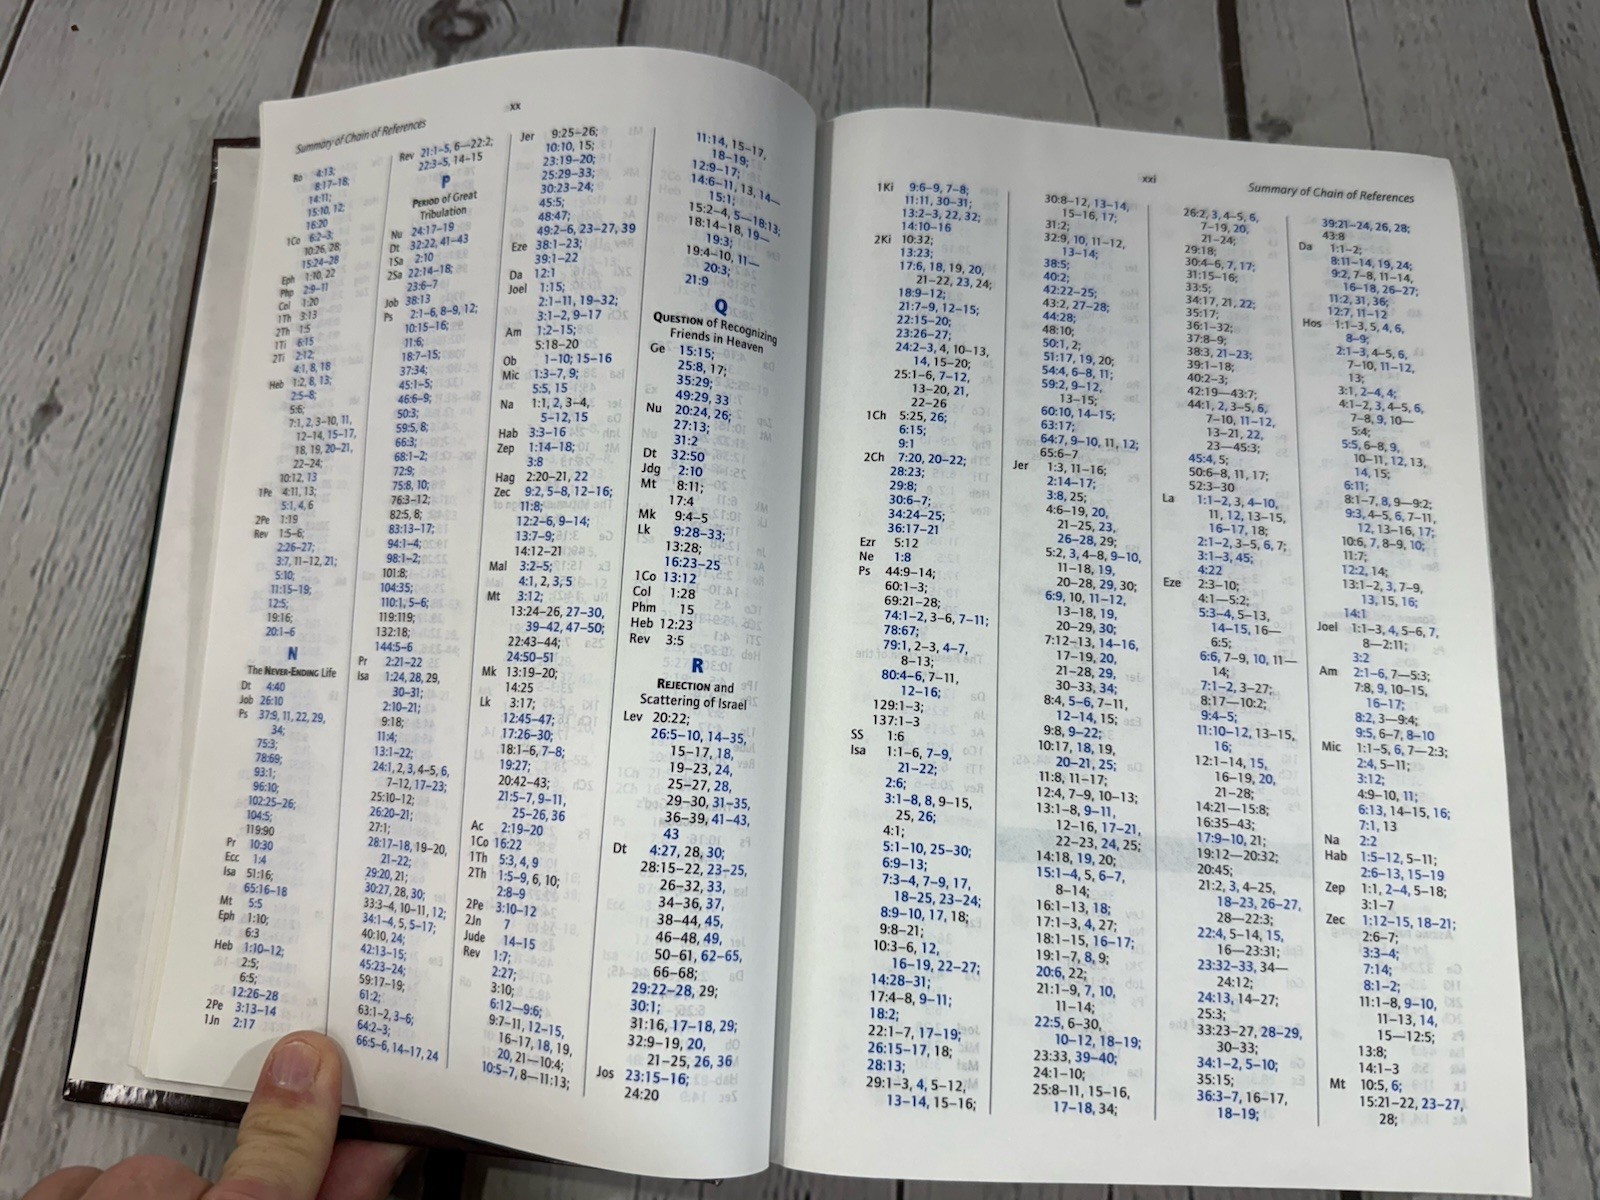 xx
Summary of Chain of References
Ro 4:13;
8:17–18;
14:11;
15:10, 12;
16:20
1Co 6:2–3;
10:26, 28;
15:24–28
Eph 1:10, 22
Php 2:9–11
Col 1:20
1Th 3:13
2Th 1:5
1Ti 6:15
2Ti 2:12;
4:1, 8, 18
Heb 1:2, 8, 13;
2:5–8;
5:6;
7:1, 2, 3–10, 11,
12–14, 15–17,
18, 19, 20–21,
22–24;
10:12, 13
1Pe 4:11, 13;
5:1, 4, 6
2Pe 1:19
Rev 1:5–6;
2:26–27;
3:7, 11–12, 21;
5:10;
11:15–19;
12:5;
19:16;
20:1–6
N
The NEVER-ENDING Life
Dt 4:40
Job 26:10
Ps 37:9, 11, 22, 29,
34;
75:3;
78:69;
93:1;
96:10;
102:25–26;
104:5;
119:90
Pr 10:30
Ecc 1:4
Isa 51:16;
65:16–18
Mt 5:5
Eph 1:10;
6:3
Heb 1:10–12;
2:5;
6:5;
12:26–28
2Pe 3:13–14
1Jn 2:17
Rev 21:1–5, 6—22:2;
22:3–5, 14–15
P
PERIOD of Great
Tribulation
Nu 24:17–19
Dt 32:22, 41–43
1Sa 2:10
2Sa 22:14–18;
23:6–7
Job 38:13
Ps 2:1–6, 8–9, 12;
10:15–16;
11:6;
18:7–15;
37:34;
45:1–5;
46:6–9;
50:3;
59:5, 8;
66:3;
68:1–2;
72:9;
75:8, 10;
76:3–12;
82:5, 8;
83:13–17;
94:1–4;
98:1–2;
101:8;
104:35;
110:1, 5–6;
119:119;
132:18;
144:5–6
Pr 2:21–22
Isa 1:24, 28, 29,
30–31;
2:10–21;
9:18;
11:4;
13:1–22;
24:1, 2, 3, 4–5, 6,
7–12, 17–23;
25:10–12;
26:20–21;
27:1;
28:17–18, 19–20,
21–22;
29:20, 21;
30:27, 28, 30;
33:3–4, 10–11, 12;
34:1–4, 5, 5–17;
40:10, 24;
42:13–15;
45:23–24;
59:17–19;
61:2;
63:1–2, 3–6;
64:2–3;
66:5–6, 14–17, 24
Jer 9:25–26;
10:10, 15;
23:19–20;
25:29–33;
30:23–24;
45:5;
48:47;
49:2–6, 23–27, 39
Eze 38:1–23;
39:1–22
Da 12:1
Joel 1:15;
2:1–11, 19–32;
3:1–2, 9–17
Am 1:2–15;
5:18–20
Ob 1–10; 15–16
Mic 1:3–7, 9;
5:5, 15
Na 1:1, 2, 3–4,
5–12, 15
Hab 3:3–16
Zep 1:14–18;
3:8
Hag 2:20–21, 22
Zec 9:2, 5–8, 12–16;
11:8;
12:2–6, 9–14;
13:7–9;
14:12–21
Mal 3:2–5;
4:1, 2, 3, 5
Mt 3:12;
13:24–26, 27–30,
39–42, 47–50;
22:43–44;
24:50–51
Mk 13:19–20;
14:25
Lk 3:17;
12:45–47;
17:26–30;
18:1–6, 7–8;
19:27;
20:42–43;
21:5–7, 9–11,
25–26, 36
Ac 2:19–20
1Co 16:22
1Th 5:3, 4, 9
2Th 1:5–9, 6, 10;
2:8–9
2Pe 3:10–12
2Jn 7
Jude 14–15
Rev 1:7;
2:27;
3:10;
6:12—9:6;
9:7–11, 12–15,
16–17, 18, 19,
20, 21—10:4;
10:5–7, 8—11:13;
11:14, 15–17,
18–19;
12:9–17;
14:6–11, 13, 14—
15:1;
15:2–4, 5—18:13;
18:14–18, 19—
19:3;
19:4–10, 11—
20:3;
21:9
Q
QUESTION of Recognizing
Friends in Heaven
Ge 15:15;
25:8, 17;
35:29;
49:29, 33
Nu 20:24, 26;
27:13;
31:2
Dt 32:50
Jdg 2:10
Mt 8:11;
17:4
Mk 9:4–5
Lk 9:28–33;
13:28;
16:23–25
1Co 13:12
Col 1:28
Phm 15
Heb 12:23
Rev 3:5
R
REJECTION and
Scattering of Israel
Lev 20:22;
26:5–10, 14–35,
15–17, 18,
19–23, 24,
25–27, 28,
29–30, 31–35,
36–39, 41–43,
43
Dt 4:27, 28, 30;
28:15–22, 23–25,
26–32, 33,
34–36, 37,
38–44, 45,
46–48, 49,
50–61, 62–65,
66–68;
29:22–28, 29;
30:1;
31:16, 17–18, 29;
32:9–19, 20,
21–25, 26, 36
Jos 23:15–16;
24:20
xxi
Summary of Chain of References
1Ki 9:6–9, 7–8;
11:11, 30–31;
13:2–3, 22, 32;
14:10–16
2Ki 10:32;
13:23;
17:6, 18, 19, 20,
21–22, 23, 24;
18:9–12;
21:7–9, 12–15;
22:15–20;
23:26–27;
24:2–3, 4, 10–13,
14, 15–20;
25:1–6, 7–12,
13–20, 21,
22–26
1Ch 5:25, 26;
6:15;
9:1
2Ch 7:20, 20–22;
28:23;
29:8;
30:6–7;
34:24–25;
36:17–21
Ezr 5:12
Ne 1:8
Ps 44:9–14;
60:1–3;
69:21–28;
74:1–2, 3–6, 7–11;
78:67;
79:1, 2–3, 4–7,
8–13;
80:4–6, 7–11,
12–16;
129:1–3;
137:1–3
SS 1:6
Isa 1:1–6, 7–9,
21–22;
2:6;
3:1–8, 8, 9–15,
25, 26;
4:1;
5:1–10, 25–30;
6:9–13;
7:3–4, 7–9, 17,
18–25, 23–24;
8:9–10, 17, 18;
9:8–21;
10:3–6, 12,
16–19, 22–27;
14:28–31;
17:4–8, 9–11;
18:2;
22:1–7, 17–19;
26:15–17, 18;
28:13;
29:1–3, 4, 5–12,
13–14, 15–16;
30:8–12, 13–14,
15–16, 17;
31:2;
32:9, 10, 11–12,
13–14;
38:5;
40:2;
42:22–25;
43:2, 27–28;
44:28;
48:10;
50:1, 2;
51:17, 19, 20;
54:4, 6–8, 11;
59:2, 9–12,
13–15;
60:10, 14–15;
63:17;
64:7, 9–10, 11, 12;
65:6–7
Jer 1:3, 11–16;
2:14–17;
3:8, 25;
4:6–19, 20,
21–25, 23,
26–28, 29;
5:2, 3, 4–8, 9–10,
11–18, 19,
20–28, 29, 30;
6:9, 10, 11–12,
13–18, 19,
20–29, 30;
7:12–13, 14–16,
17–19, 20,
21–28, 29,
30–33, 34;
8:4, 5–6, 7–11,
12–14, 15;
9:8, 9–22;
10:17, 18, 19,
20–21, 25;
11:8, 11–17;
12:4, 7–9, 10–13;
13:1–8, 9–11,
12–16, 17–21,
22–23, 24, 25;
14:18, 19, 20;
15:1–4, 5, 6–7,
8–14;
16:1–13, 18;
17:1–3, 4, 27;
18:1–15, 16–17;
19:1–7, 8, 9;
20:6, 22;
21:1–9, 7, 10,
11–14;
22:5, 6–30,
10–12, 18–19;
23:33, 39–40;
24:1–10;
25:8–11, 15–16,
17–18, 34;
26:2, 3, 4–5, 6,
7–19, 20,
21–24;
29:18;
30:4–6, 7, 17;
31:15–16;
33:5;
34:17, 21, 22;
35:17;
36:1–32;
37:8–9;
38:3, 21–23;
39:1–18;
40:2–3;
42:19—43:7;
44:1, 2, 3–5, 6,
7–10, 11–12,
13–21, 22,
23—45:3;
45:4, 5;
50:6–8, 11, 17;
52:3–30
La 1:1–2, 3, 4–10,
11, 12, 13–15,
16–17, 18;
2:1–2, 3–5, 6, 7;
3:1–3, 45;
4:22
Eze 2:3–10;
4:1—5:2;
5:3–4, 5–13,
14–15, 16—
6:5;
6:6, 7–9, 10, 11—
14;
7:1–2, 3–27;
8:17—10:2;
9:4–5;
11:10–12, 13–15,
16;
12:1–14, 15,
16–19, 20,
21–28;
14:21—15:8;
16:35–43;
17:9–10, 21;
19:12—20:32;
20:45;
21:2, 3, 4–25,
18–23, 26–27,
28—22:3;
22:4, 5–14, 15,
16—23:31;
23:32–33, 34—
24:12;
24:13, 14–27;
25:3;
33:23–27, 28–29,
30–33;
34:1–2, 5–10;
35:15;
36:3–7, 16–17,
18–19;
39:21–24, 26, 28;
43:8
Da 1:1–2;
8:11–14, 19, 24;
9:2, 7–8, 11–14,
16–18, 26–27;
11:2, 31, 36;
12:7, 11–12
Hos 1:1–3, 5, 4, 6,
8–9;
2:1–3, 4–5, 6,
7–10, 11–12,
13;
3:1, 2–4, 4;
4:1–2, 3, 4–5, 6,
7–8, 9, 10—
5:4;
5:5, 6–8, 9,
10–11, 12, 13,
14, 15;
6:11;
8:1–7, 8, 9—9:2;
9:3, 4–5, 6, 7–11,
12, 13–16, 17;
10:6, 7, 8–9, 10;
11:7;
12:2, 14;
13:1–2, 3, 7–9,
13, 15, 16;
14:1
Joel 1:1–3, 4, 5–6, 7,
8—2:11;
3:2
Am 2:1–6, 7—5:3;
7:8, 9, 10–15,
16–17;
8:2, 3—9:4;
9:5, 6–7, 8–10
Mic 1:1–5, 6, 7—2:3;
2:4, 5–11;
3:12;
4:9–10, 11;
6:13, 14–15, 16;
7:1, 13
Na 2:2
Hab 1:5–12, 5–11;
2:6–13, 15–19
Zep 1:1, 2–4, 5–18;
3:1–7
Zec 1:12–15, 18–21;
2:6–7;
3:3–4;
7:14;
8:1–2;
11:1–8, 9–10,
11–13, 14,
15—12:5;
13:8;
14:1–3
Mt 10:5, 6;
15:21–22, 23–27,
28;